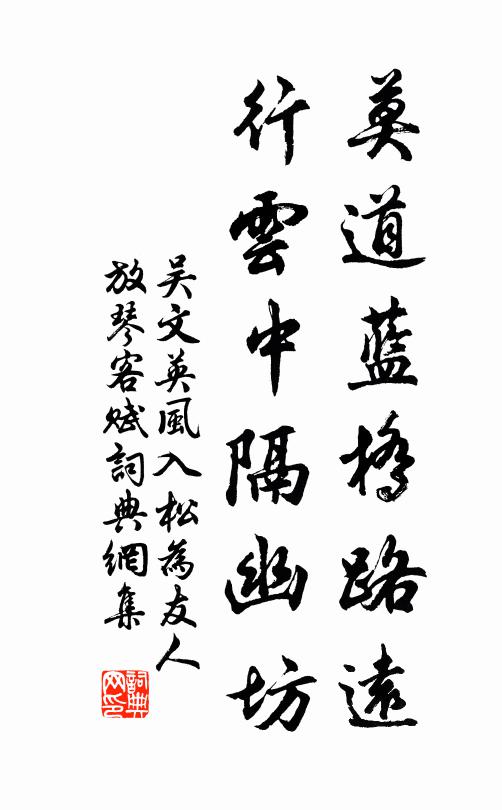 莫道藍橋路遠
行雲中隔幽坊
吳文英風入松為友人
放琴客賦詞典網集
詞典网印